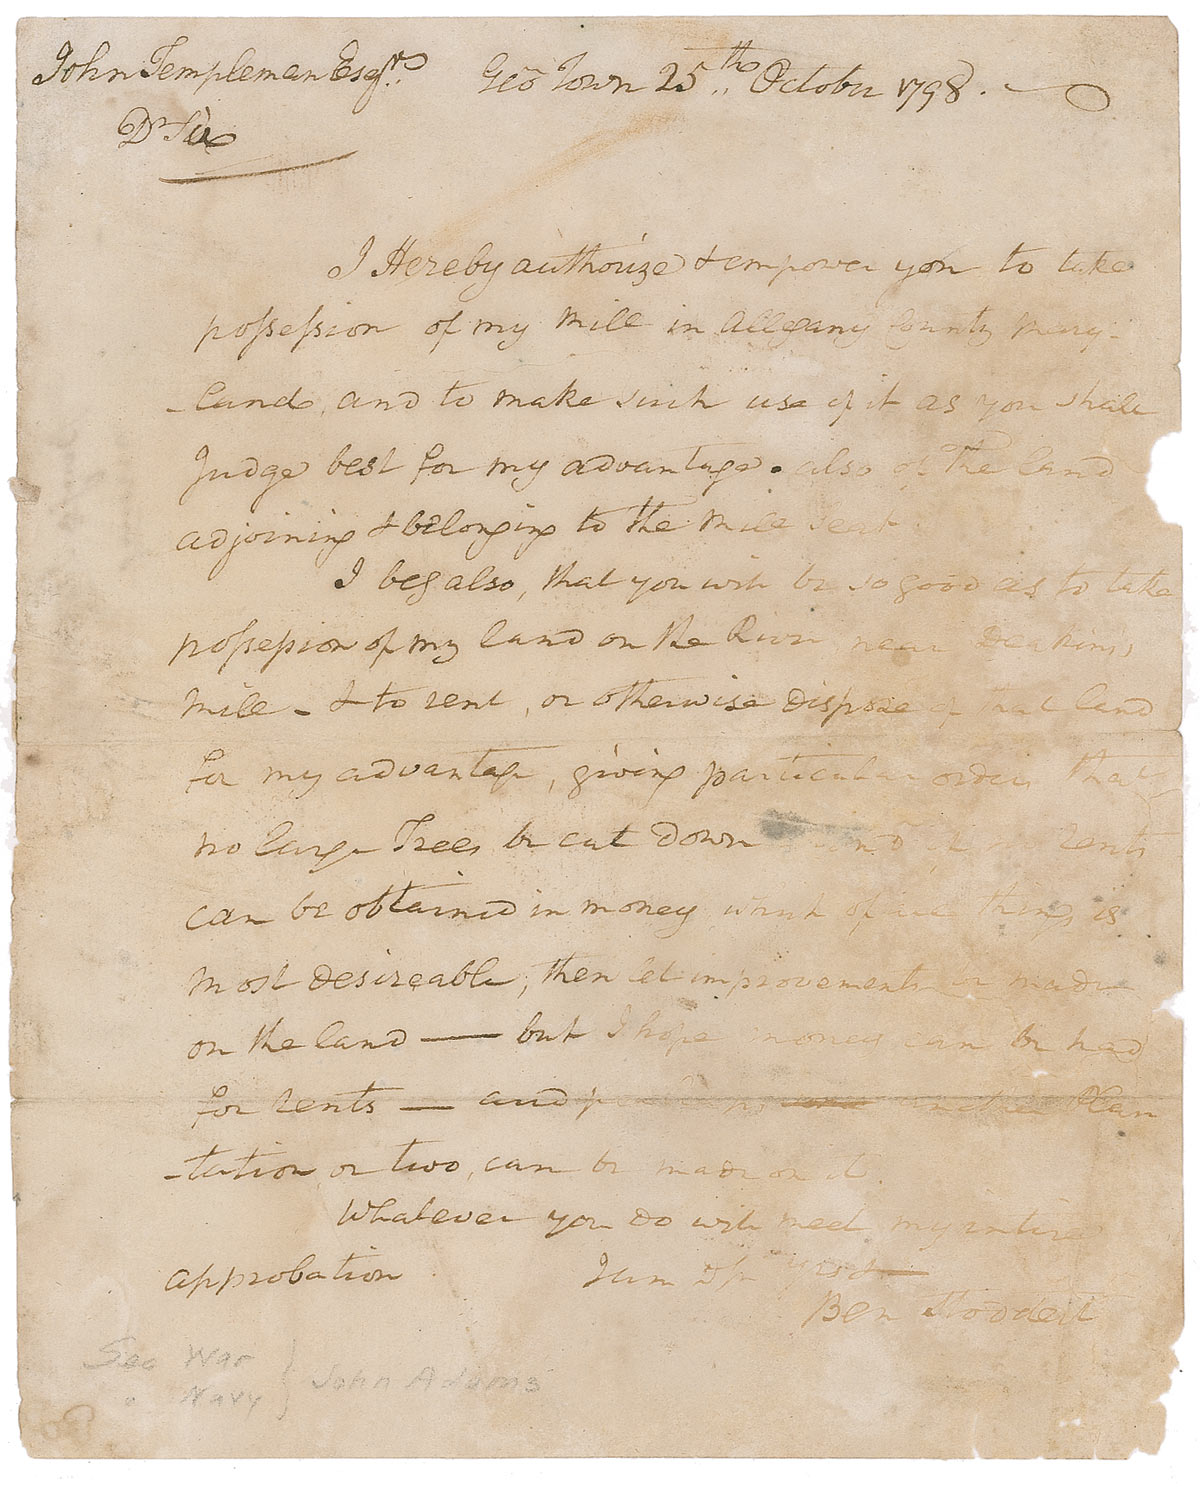 John Templeman Esqr. Geo Town 25th October 1798.
Dr Sir
I Hereby authorize & empower you to take
possession of my Mill in Allegany County Mary-
-land, and to make such use of it as you shall
Judge best for my advantage. also of the land
adjoining & belonging to the Mill Seat
I beg also, that you will be so good as to take
possession of my land on the River near Deakins
Mill - & to rent, or otherwise dispose of that land
for my advantage, giving particular orders that
no large Trees be cut down rents
can be obtained in money which of all things is
most desireable, then let improvements be made
on the land — but I hope money can be had
for rents — and another Plan
-tation or two, can be made on it.
Whatever you do will meet my intire
approbation I am Dr Sir Yrs &
Ben Stoddert
Sec War } John Adams
" Navy